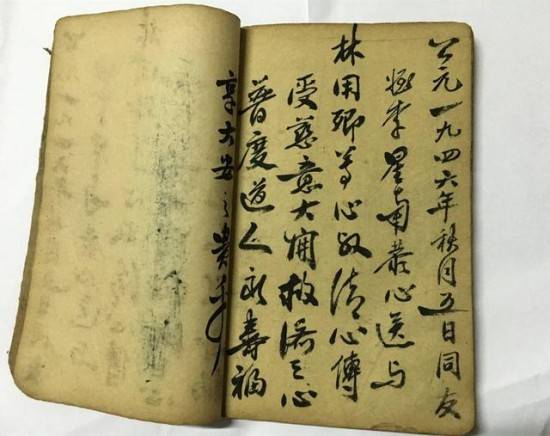 公元一九四六年秋月五日同友
李星甫慕心送与
林用卿等心故清心傳
受慈意大開救濟之心
普度道人永壽福
享大安之貴